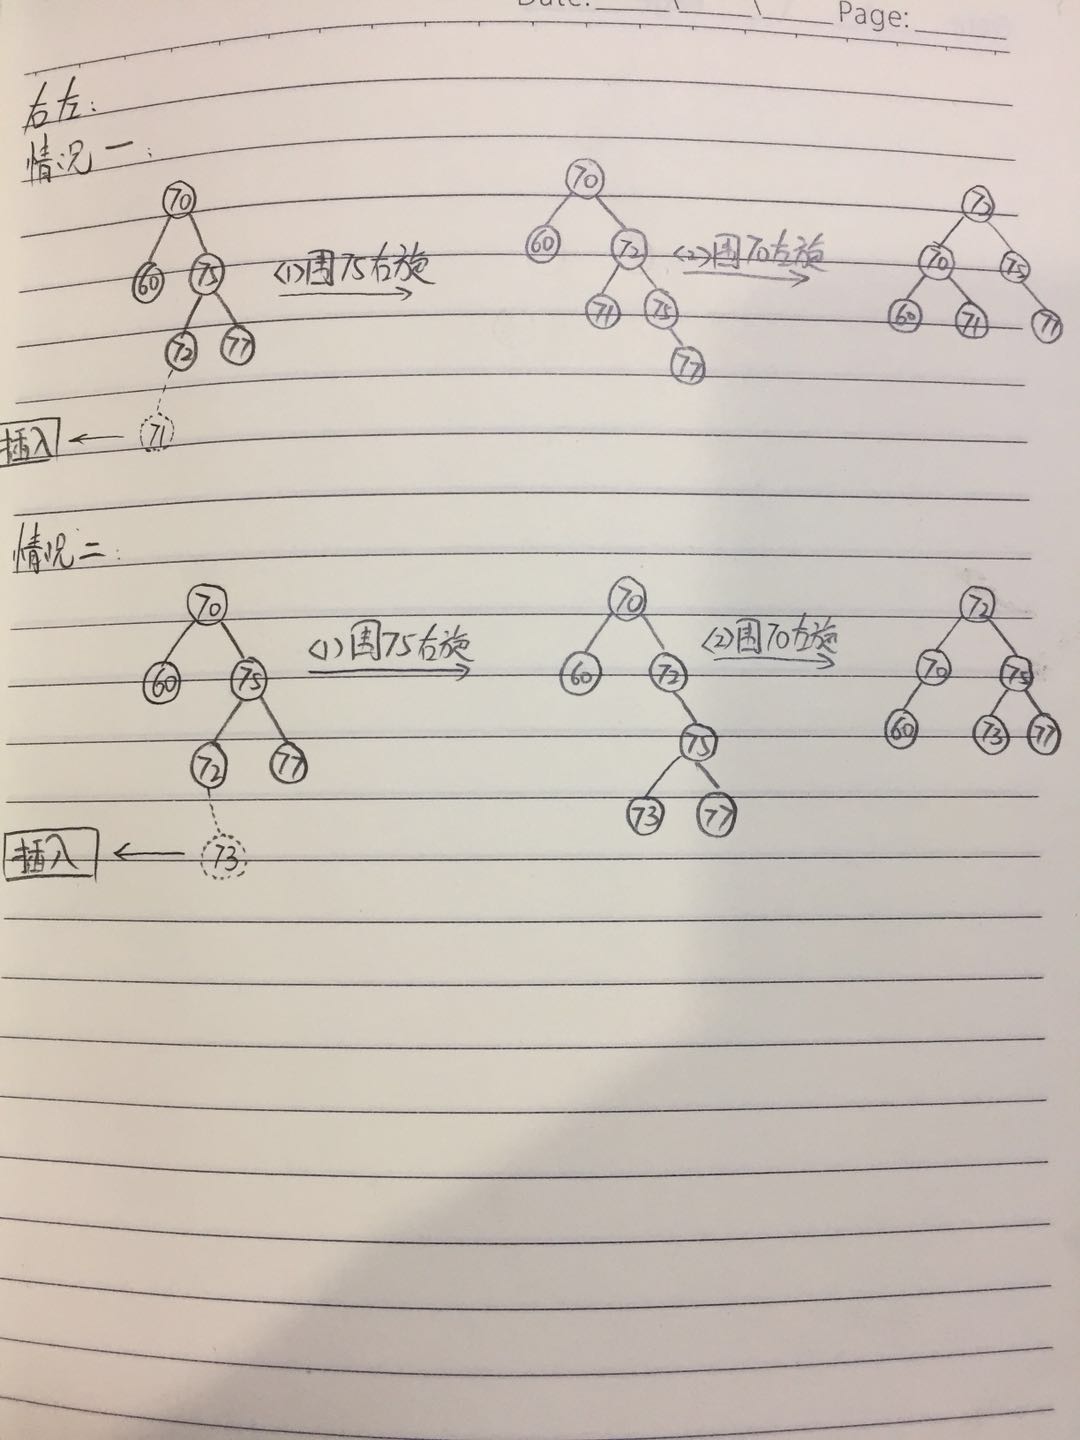 Date: \ \ Page:
右左:
情况一:
70 70 72
60 75 <1>围75右旋 60 72 <2>围70左旋 70 75
72 77 71 75 60 71 77
77
插入 71
情况二:
70 70 72
60 75 <1>围75右旋 60 72 <2>围70左旋 70 75
72 77 75 60 73 77
73 77
插入 73